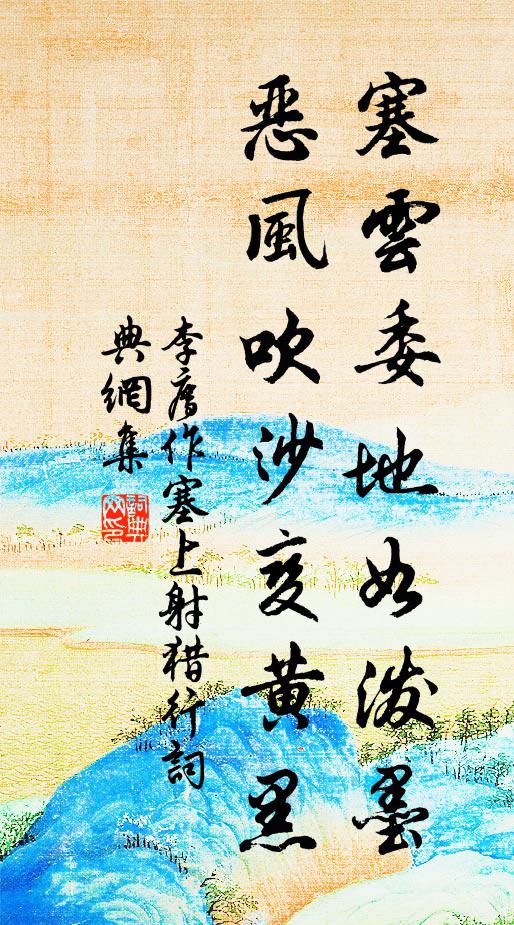 塞雲委地如潑墨
惡風吹沙变黄黑
李廌作塞上射猎行詞
典網集
詞典網印